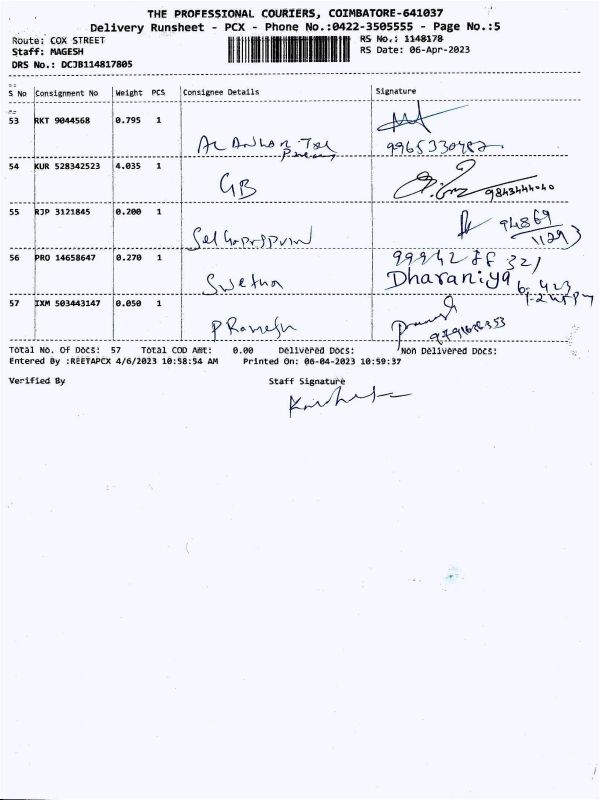 THE PROFESSIONAL COURIERS, COIMBATORE-641037
Delivery Runsheet - PCX - Phone No.:0422-3505555 - Page No.:5
Route: COX STREET RS No.: 1148178
Staff: MAGESH RS Date: 06-Apr-2023
DRS No.: DCJB114817805
S No Consignment No Weight PCS Consignee Details Signature
53 RKT 9044568 0.795 1
9965330482
54 KUR 528342523 4.035 1
GB 9843444040
55 RJP 3121845 0.200 1
94869
11293
56 PRO 14658647 0.270 1
Swetha Dharaniya
57 IXM 503443147 0.050 1
P Ramesh
Total No. Of Docs: 57 Total COD Amt: 0.00 Delivered Docs: Non Delivered Docs:
Entered By :REETAPCX 4/6/2023 10:58:54 AM Printed On: 06-04-2023 10:59:37
Verified By Staff Signature